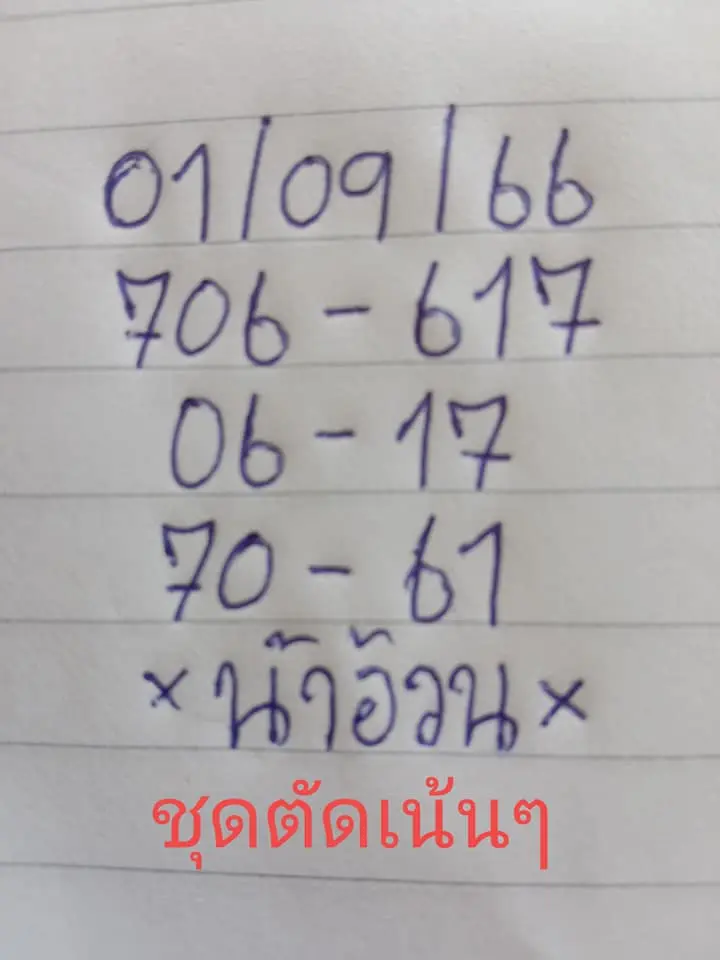 01/09/66
706 - 617
06 - 17
70 - 61
× น้าอ้วน ×
ชุดตัดเน้นๆ